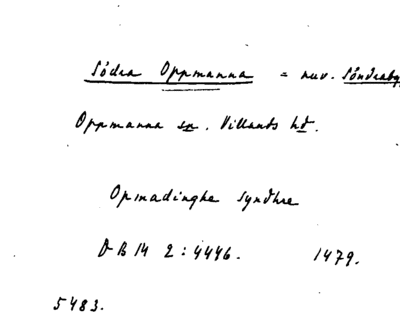 Södra Oppmanna = nuv. Söndraby
Oppmanna sn. Villands hd.
Opmadinghe syndhre
DBM 2:4446. 1479.
5483.